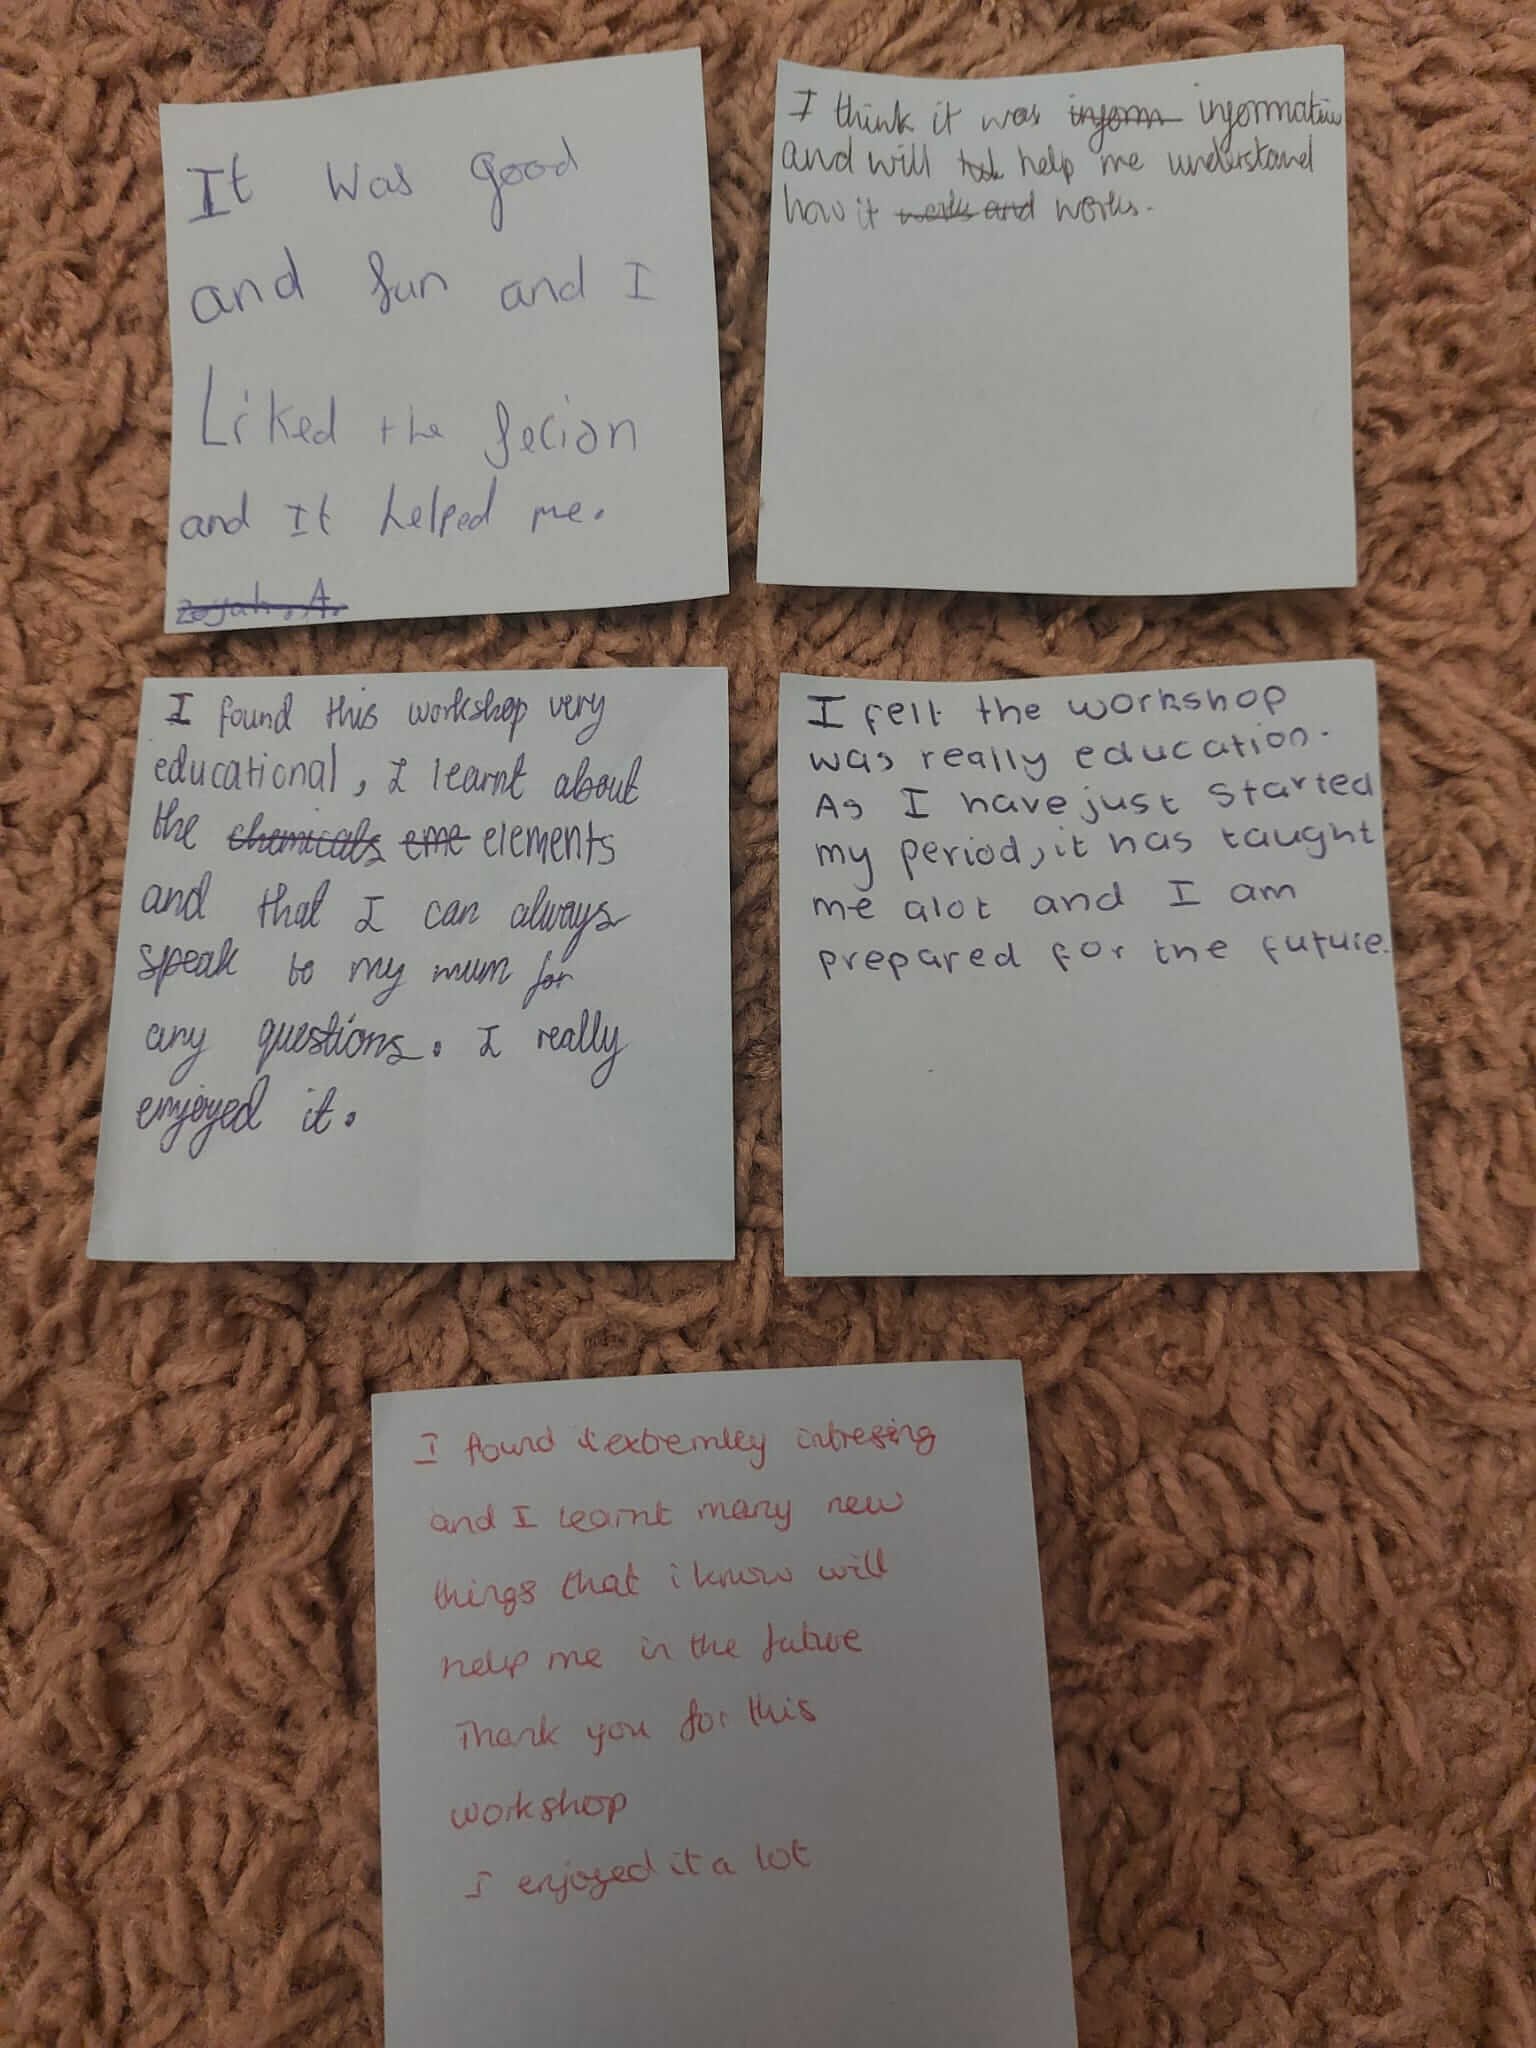 It was good
and fun and I
Liked the secion
and It helped me.
I think it was inform informative
and will help me understand
how it works and works.
I found this workshop very
educational, I learnt about
the chemicals eme elements
and that I can always
speak to my mum for
any questions. I really
enjoyed it.
I felt the workshop
was really education.
As I have just started
my period, it has taught
me alot and I am
prepared for the future.
I found extremley intresing
and I learnt many new
things that i know will
help me in the future
Thank you for this
workshop
I enjoyed it a lot